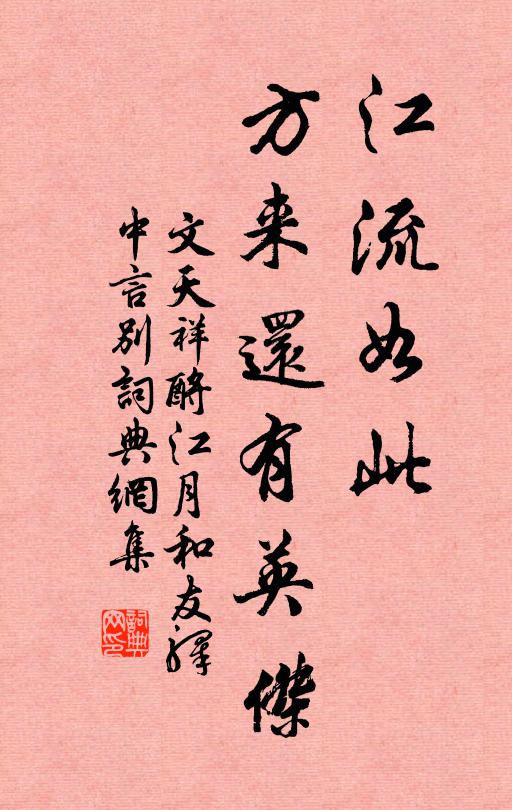 江流如此
方来還有英傑
文天祥酹江月和友驛
中言别詞典網集
詞典
网印